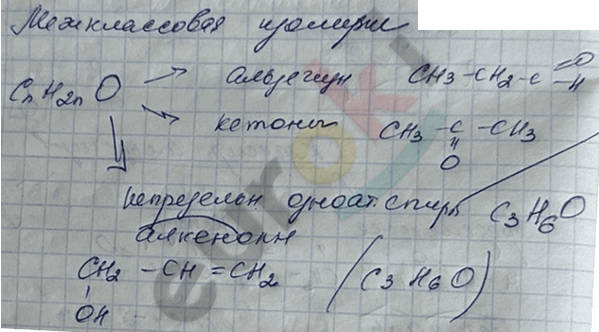 Межклассовая изомерия
CnH2n O → альдегиды CH3 - CH2 - C =O - H
кетоны CH3 - C - CH3
O
непредельн одноат. спирты C3H6O
алкенолы
CH2 - CH = CH2 (C3H6O)
OH